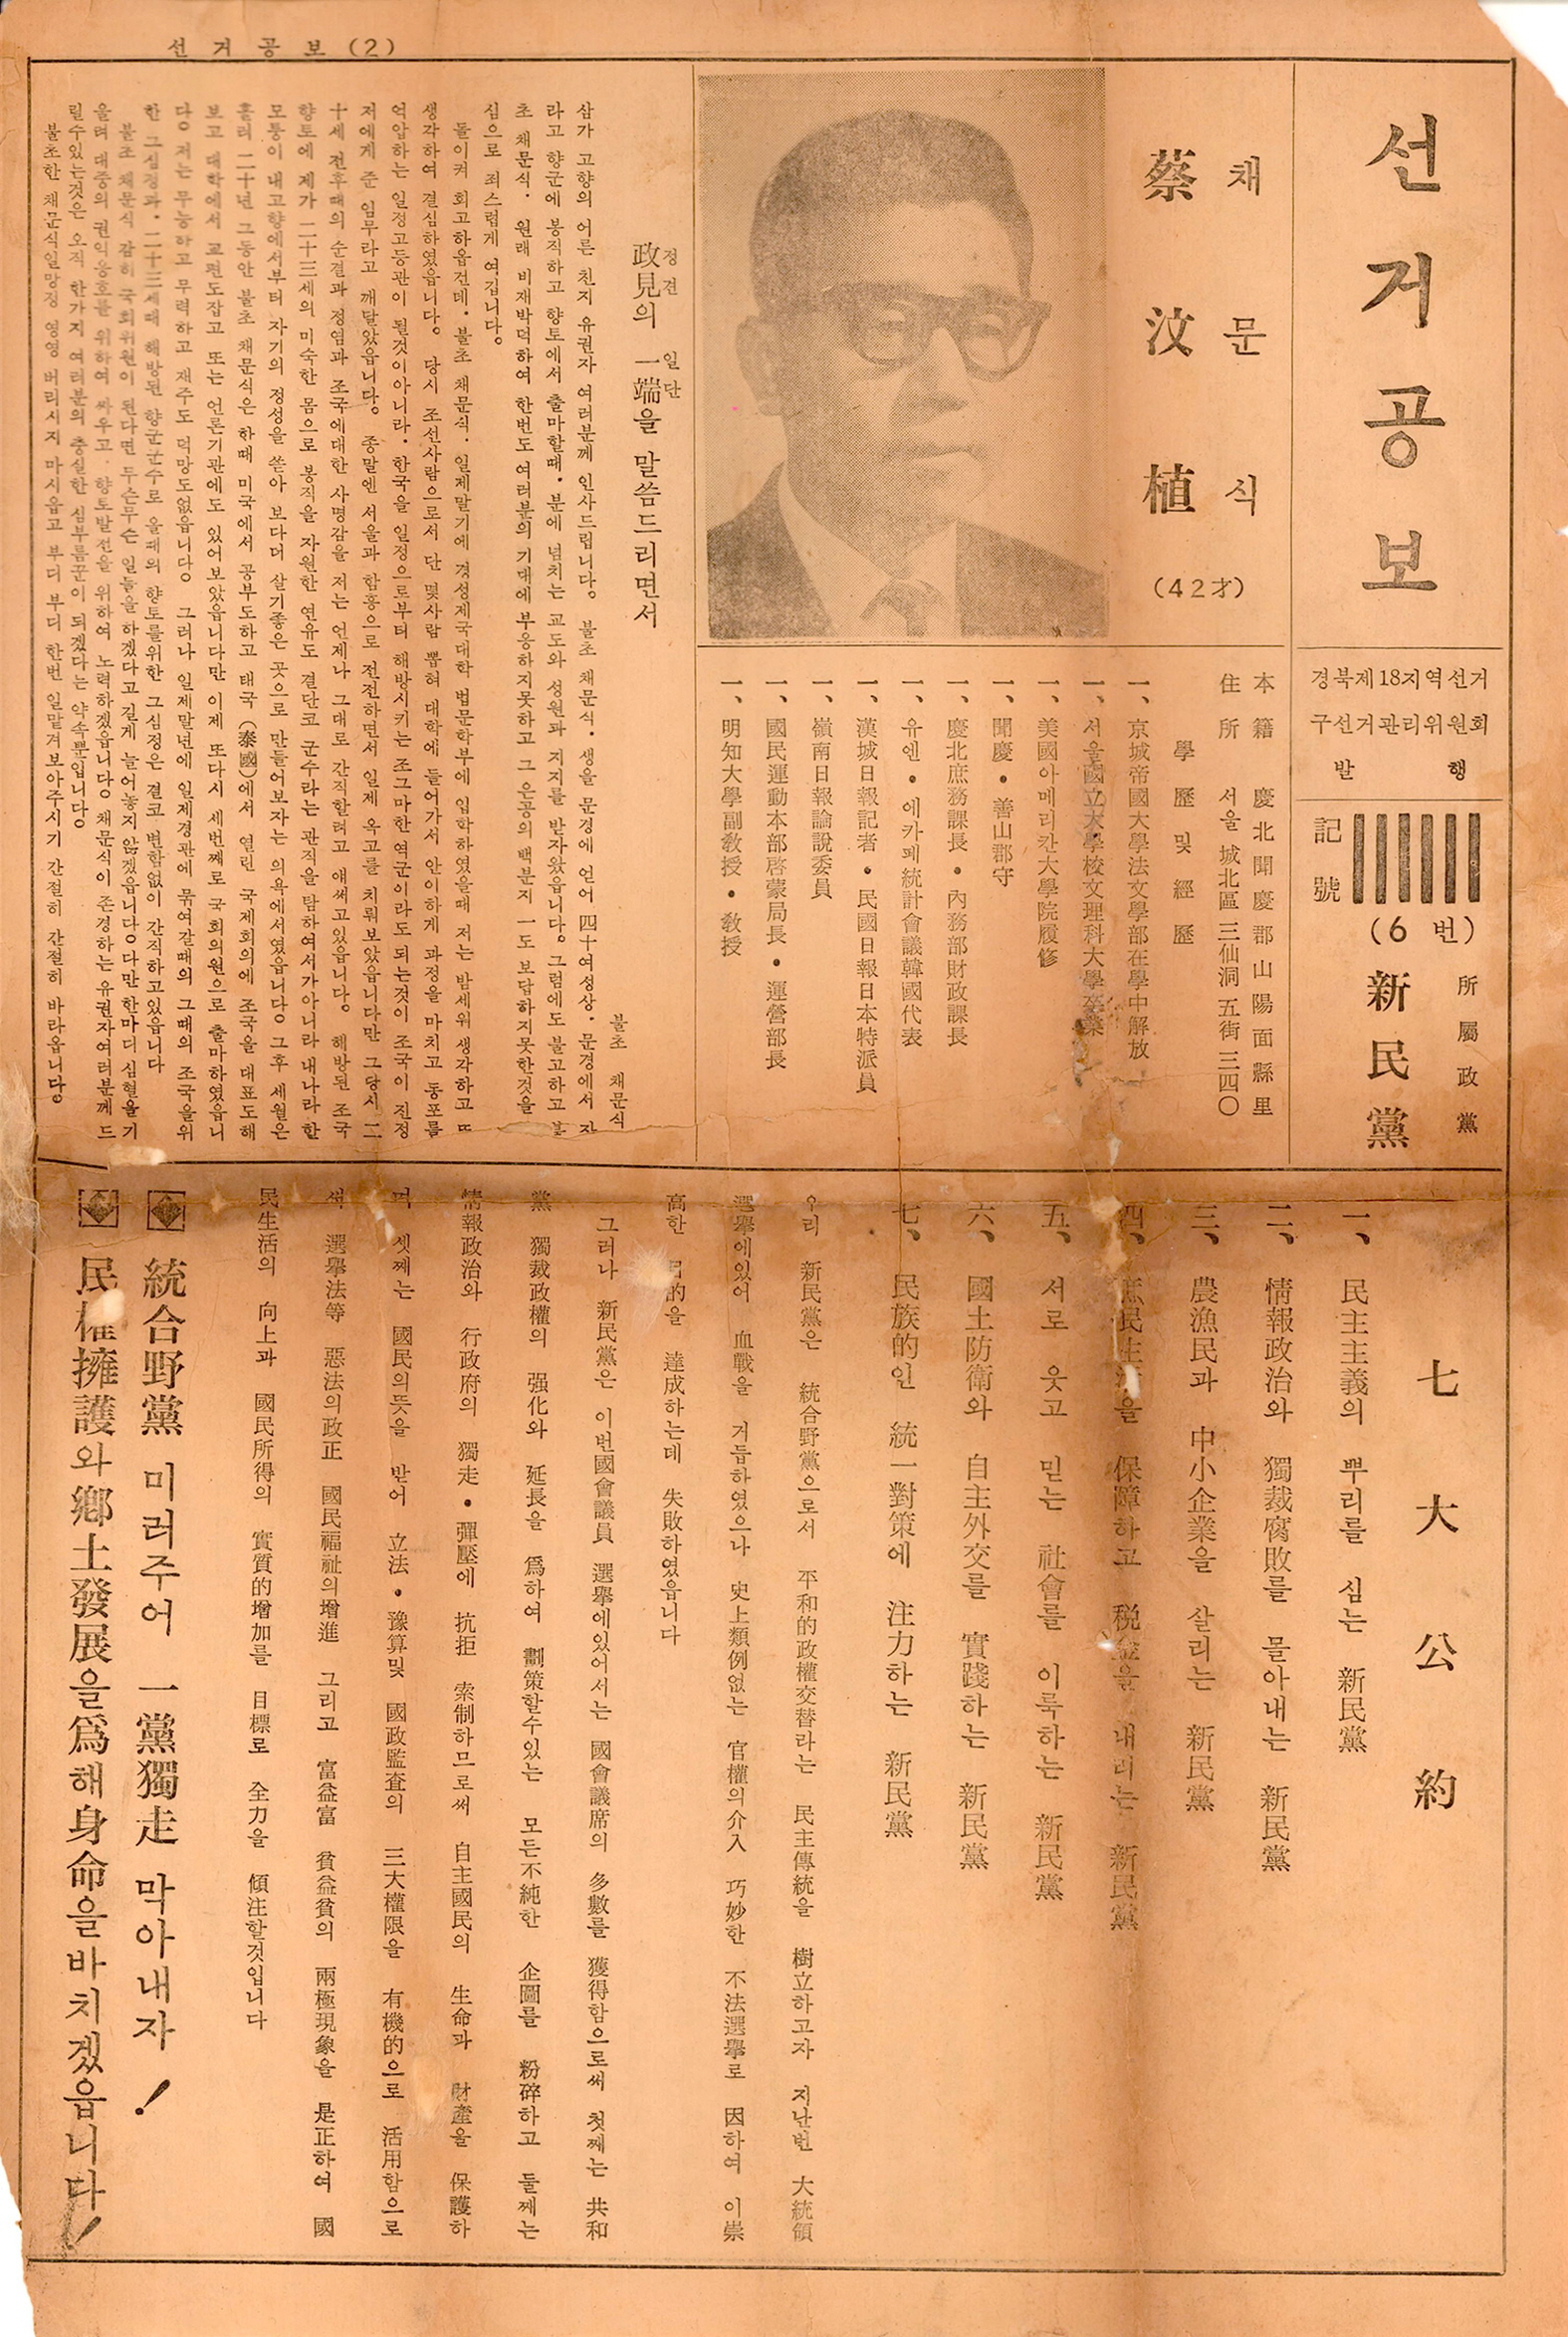 선거공보(2)
선거공보
경북제18지역선거
구선거관리위원회
발행
記號
(6번)
所屬政黨
新民黨
채문식
蔡汶植
(42才)
本籍 慶北聞慶郡山陽面縣里
住所 서울 城北區 三仙洞 五街 三四〇
學歷 및 經歷
一、京城帝國大學法文學部在學中解放
一、서울國立大學校文理科大學卒業
一、美國아메리칸大學院履修
一、聞慶•善山郡守
一、慶北庶務課長•內務部財政課長
一、유엔•에카페統計會議韓國代表
一、漢城日報記者•民國日報日本特派員
一、嶺南日報論說委員
一、國民運動本部啓蒙局長•運營部長
一、明知大學副敎授•敎授
政見의 一端을 말씀드리면서
정견 일단
불초 채문식
삼가 고향의 어른 친지 유권자 여러분께 인사드립니다。 불초 채문식. 생을 문경에 얻어 四十여성상. 문경에서 자
라고 향군에 봉직하고 향토에서 출마할때. 분에 넘치는 교도와 성원과 지지를 받자왔읍니다。그럼에도 불고하고 불
초 채문식. 원래 비재박덕하여 한번도 여러분의 기대에 부응하지못하고 그 은공의 백분지 一도 보답하지못한것을
심으로 죄스럽게 여깁니다。
돌이켜 회고하옵건데. 불초 채문식. 일제말기에 경성제국대학 법문학부에 입학하였을때 저는 밤세워 생각하고 또
생각하여 결심하였읍니다。 당시 조선사람으로서 단 몇사람 뽑혀 대학에 들어가서 안이하게 과정을 마치고 동포를
억압하는 일정고등관이 될것이아니라. 한국을 일정으로부터 해방시키는 조그마한 역군이라도 되는것이 조국이 진정
저에게 준 임무라고 깨달았읍니다。 종말엔 서울과 함흥으로 전전하면서 일제 옥고를 치뤄보았읍니다만 그당시 二
十세 전후때의 순결과 정열과 조국에대한 사명감을 저는 언제나 그대로 간직할려고 애써고있읍니다。 해방된 조국
향토에 제가 二十三세의 미숙한 몸으로 봉직을 자원한 연유도 결단코 군수라는 관직을 탐하여서가아니라 내나라 한
모퉁이 내고향에서부터 자기의 정성을 쏟아 보다더 살기좋은 곳으로 만들어보자는 의욕에서였읍니다。그후 세월은
흘러 二十년 그동안 불초 채문식은 한때 미국에서 공부도하고 태국(泰國)에서 열린 국제회의에 조국을 대표도해
보고 대학에서 교편도잡고 또는 언론기관에도 있어보았읍니다만 이제 또다시 세번째로 국회의원으로 출마하였읍니
다。저는 무능하고 무력하고 재주도 덕망도없읍니다。 그러나 일제말년에 일제경관에 묶여갈때의 그때의 조국을위
한 그심정과. 二十三세때 해방된 향군군수로 올때의 향토를위한 그심정은 결코 변함없이 간직하고있읍니다
불초 채문식 감히 국회위원이 된다면 무슨무슨 일들을 하겠다고 길게 늘어놓지 않겠읍니다。다만 한마디 심혈을기
울려 대중의 권익옹호를 위하여 싸우고. 향토발전을 위하여 노력하겠읍니다。채문식이 존경하는 유권자여러분께 드
릴수있는것은 오직 한가지 여러분의 충실한 심부름꾼이 되겠다는 약속뿐입니다。
불초한 채문식일망정 영영 버리시지 마시옵고 부디 부디 한번 일맡겨보아주시기 간절히 간절히 바라옵니다。
七大公約
一、民主主義의 뿌리를 심는 新民黨
二、情報政治와 獨裁腐敗를 몰아내는 新民黨
三、農漁民과 中小企業을 살리는 新民黨
四、庶民生活을 保障하고 稅金을 내리는 新民黨
五、서로 웃고 믿는 社會를 이룩하는 新民黨
六、國土防衛와 自主外交를 實踐하는 新民黨
七、民族的인 統一對策에 注力하는 新民黨
우리 新民黨은 統合野黨으로서 平和的政權交替라는 民主傳統을 樹立하고자 지난번 大統領
選擧에있어 血戰을 거듭하였으나 史上類例없는 官權의介入 巧妙한 不法選擧로 因하여 이崇
高한 目的을 達成하는데 失敗하였읍니다
그러나 新民黨은 이번國會議員 選擧에있어서는 國會議席의 多數를 獲得함으로써 첫째는 共和
黨 獨裁政權의 强化와 延長을 爲하여 劃策할수있는 모든不純한 企圖를 粉碎하고 둘째는
情報政治와 行政府의 獨走•彈壓에 抗拒 索制하므로써 自主國民의 生命과 財產을 保護하
며 셋째는 國民의뜻을 받어 立法•豫算및 國政監査의 三大權限을 有機的으로 活用함으로
써 選擧法等 惡法의政正 國民福祉의增進 그리고 富益富 貧益貧의 兩極現象을 是正하여 國
民生活의 向上과 國民所得의 實質的增加를 目標로 全力을 傾注할것입니다
統合野黨 미러주어 一黨獨走 막아내자!
民權擁護와鄕土發展을爲해身命을바치겠읍니다!